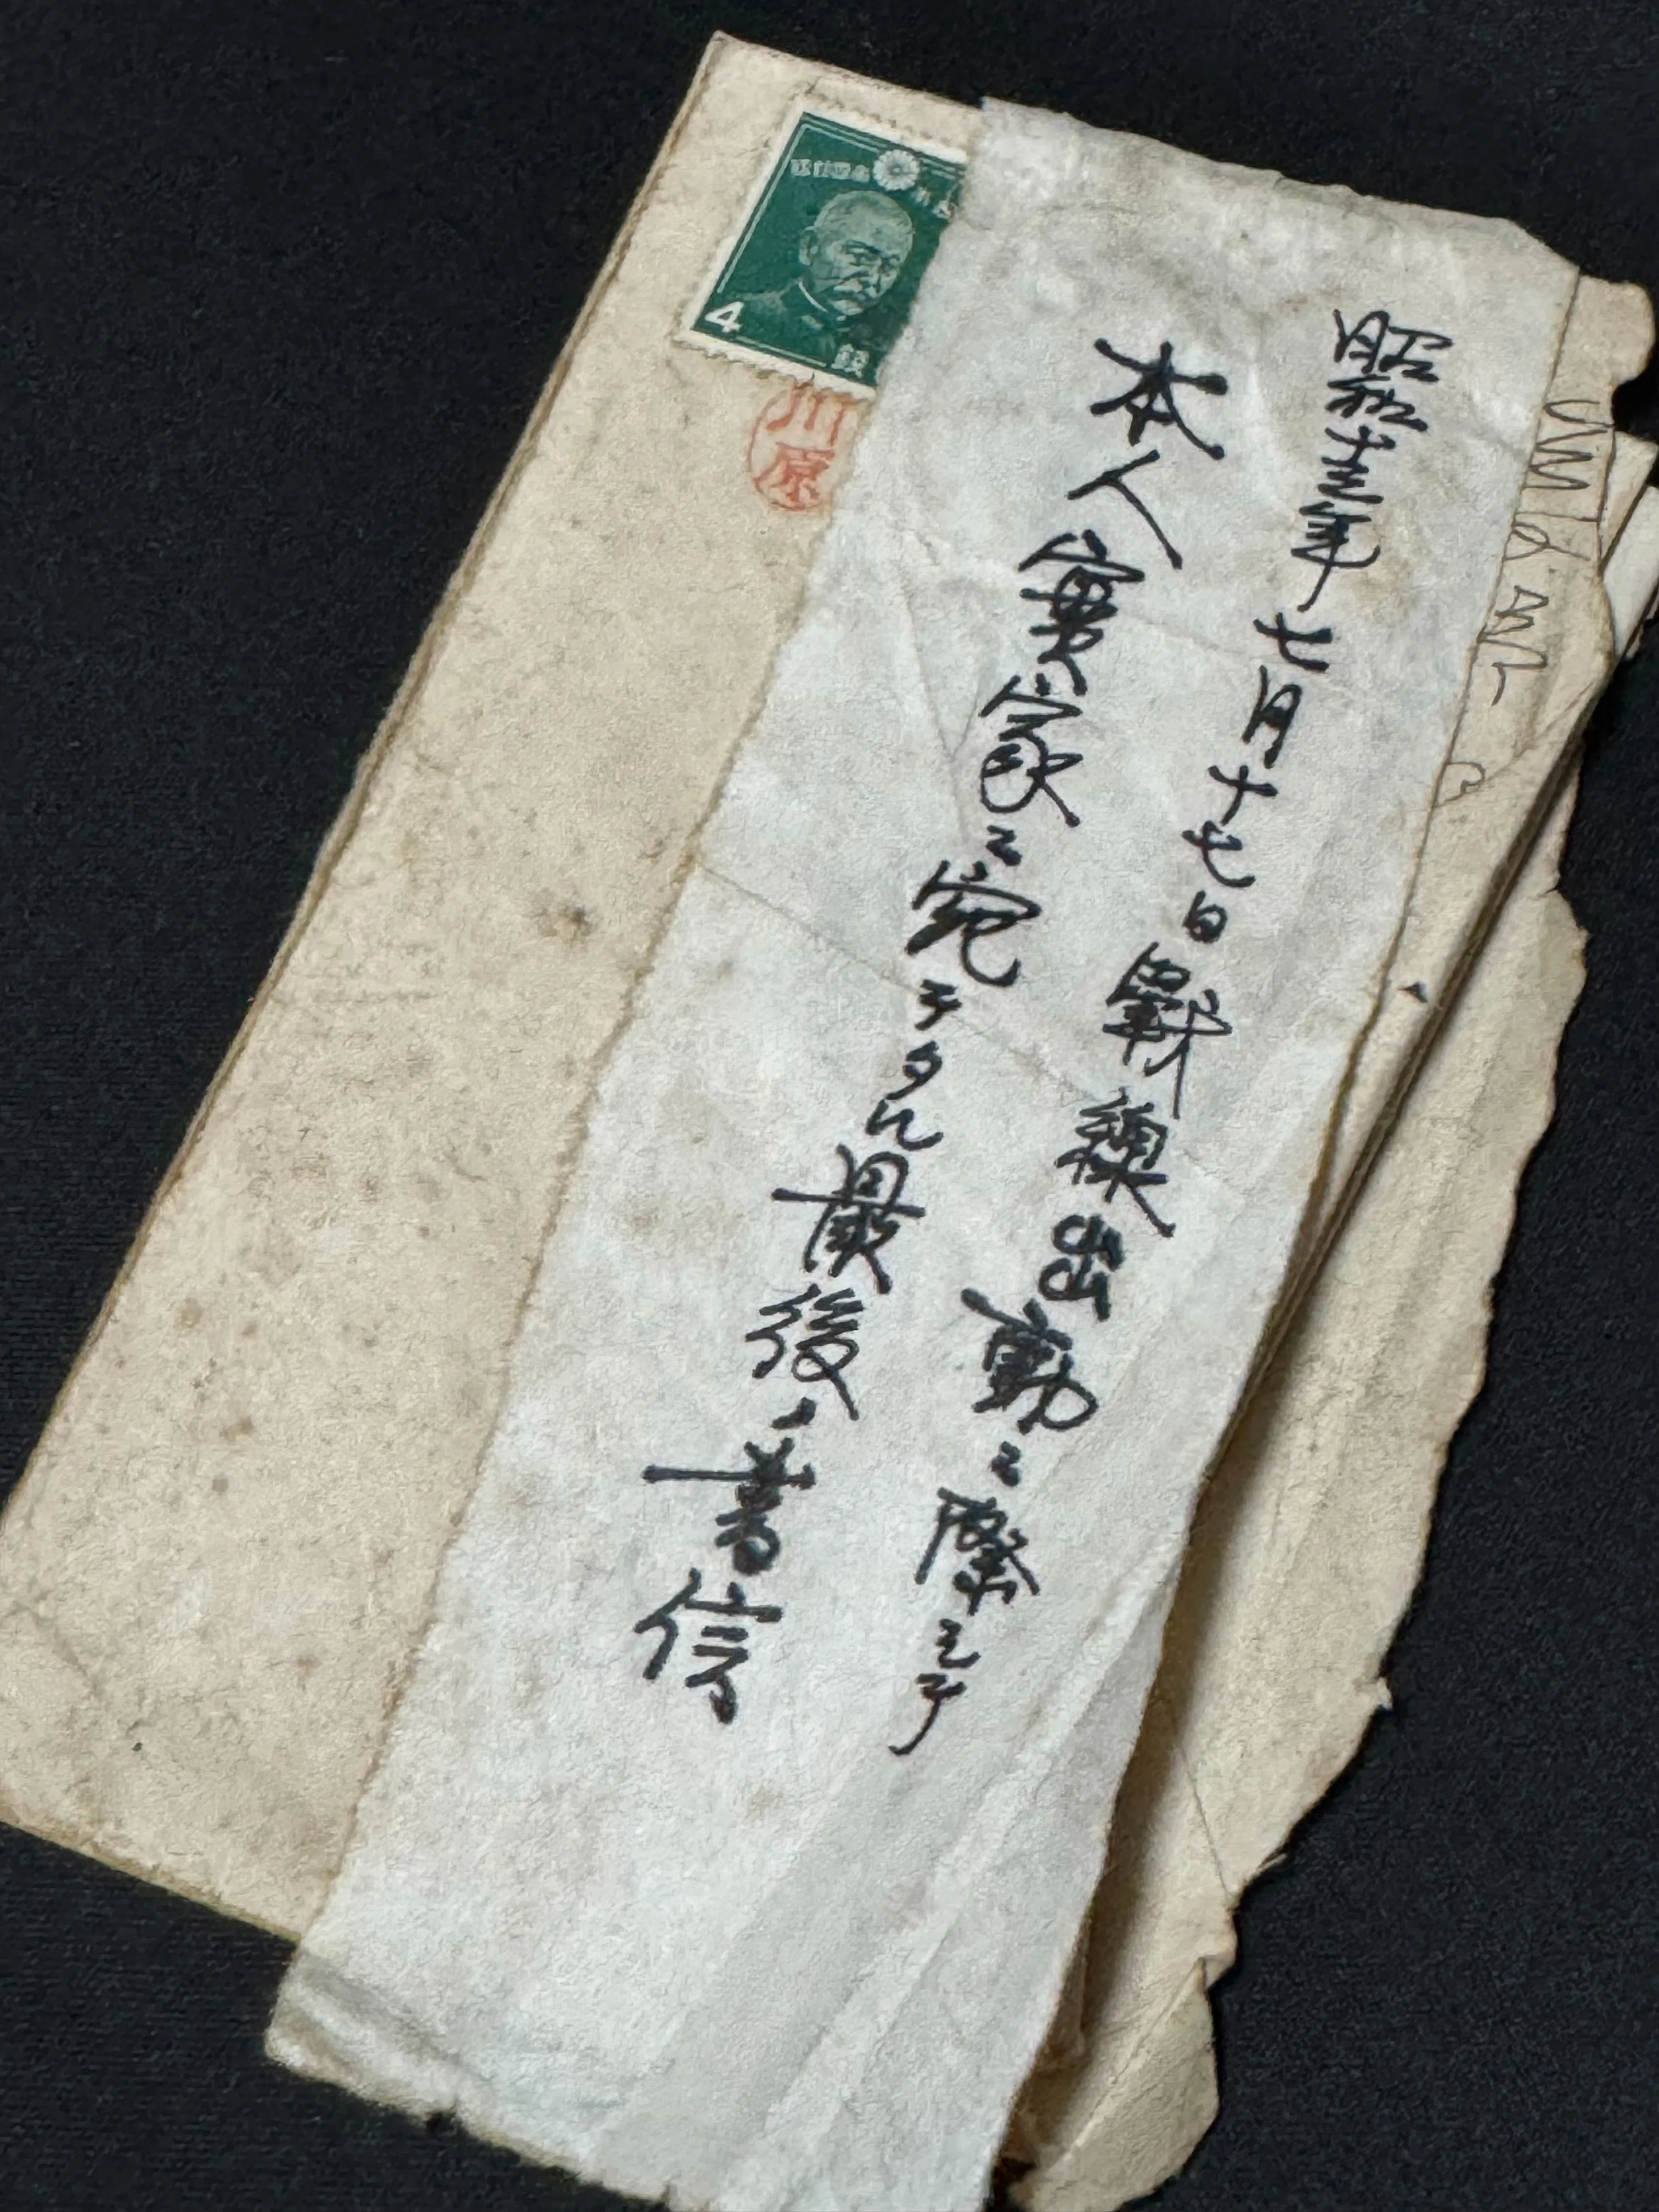 昭和十三年七月十七日戰線出動ニ際シテ
本人實家ニ宛テタル最後ノ書信
4 錢
川原